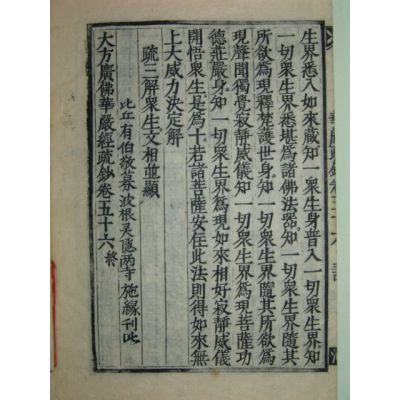 生界悉入如來藏知一衆生身普入一切衆生界知
一切衆生界悉堪爲諸佛法器知一切衆生界隨其
所欲爲現釋梵護世身知一切衆生界隨其所欲爲
現聲聞獨覺寂靜威儀知一切衆生界爲現菩薩功
德莊嚴身知一切衆生界爲現如來相好寂靜威儀
開悟衆生是爲十若諸菩薩安住此法則得如來無
上大威力決定解
疏三解衆生文相並顯
比丘有伯敬募波根吴隱兩寺施緣刊此
大方廣佛華嚴經疏鈔卷五十六 終